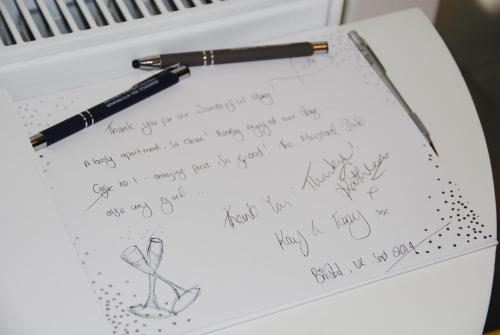 Thank you for our wonderful stay!
A lovely apartment. So clean! Really enjoyed our stay...
Cage no. 1... amazing food so good! The Mustard Pad
also very good...
Thank You!
Thankyou!
Kathleen
x
Kay & Tony xx
Bristol, UK Sept 2019